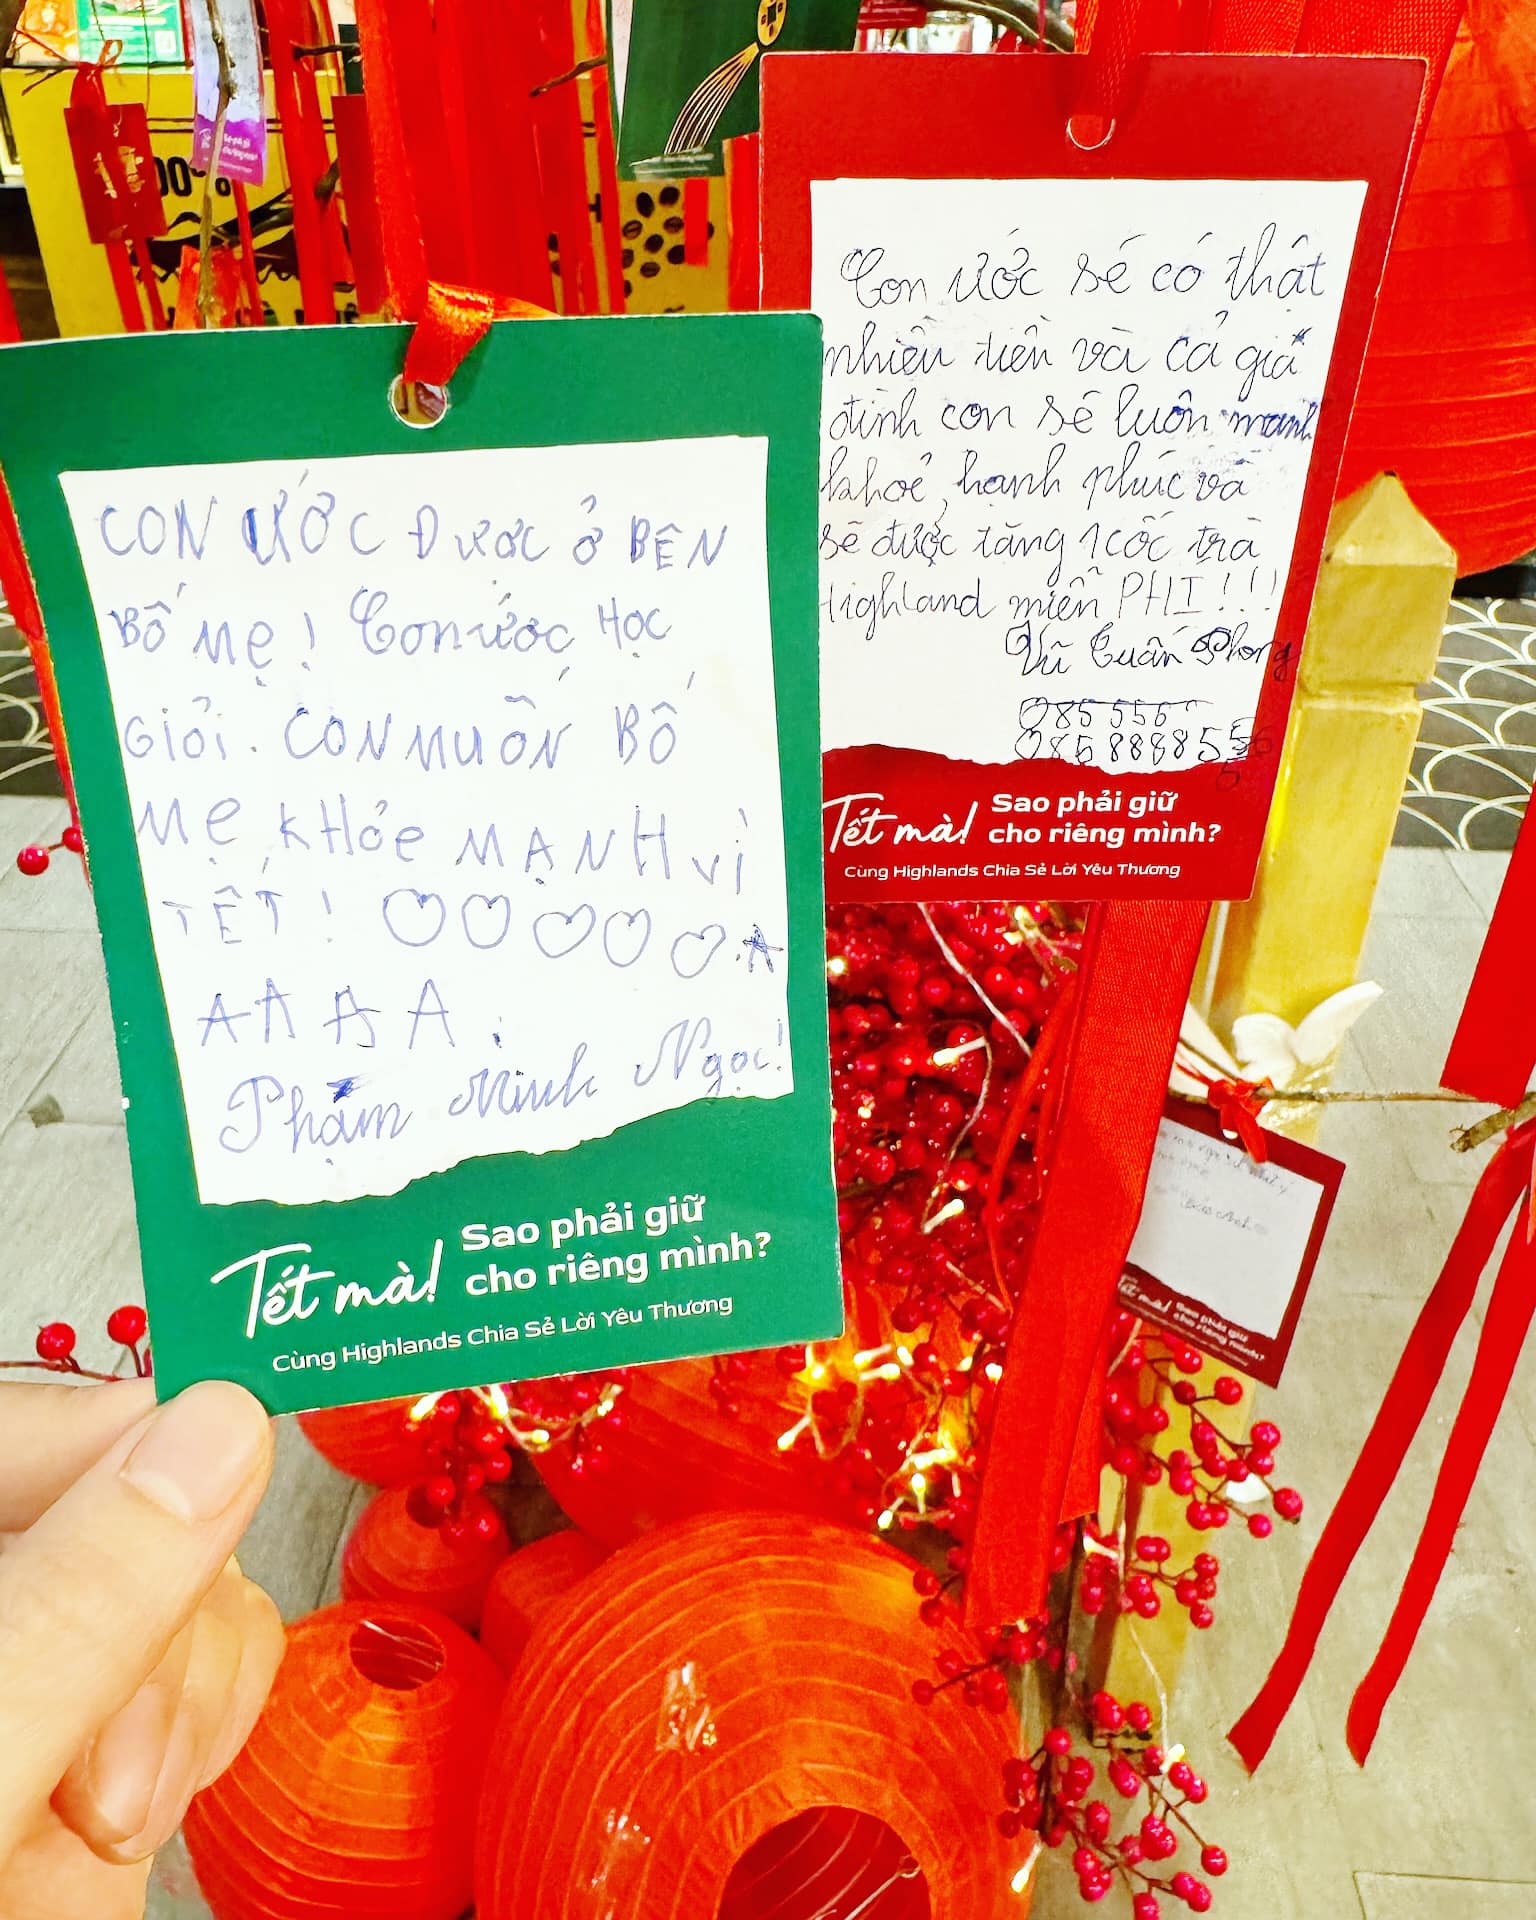 CON ƯỚC ĐƯỢC Ở BÊN
BỐ MẸ! Con ước HỌC
GIỎI. CON MUỐN BỐ
MẸ KHỎE MẠNH VÌ
TẾT! ♡♡♡♡♡.A
A A A A.
Phạm Minh Ngọc!
Tết mà!
Sao phải giữ
cho riêng mình?
Cùng Highlands Chia Sẻ Lời Yêu Thương
Con ước sẽ có thật
nhiều tiền và cả gia
đình con sẽ luôn mạnh
khoẻ, hạnh phúc và
sẽ được tăng 1 cốc trà
Highland miễn PHI!!!
Vũ Tuấn Phong
Tết mà!
Sao phải giữ
cho riêng mình?
Cùng Highlands Chia Sẻ Lời Yêu Thương
Tết mà!
Sao phải giữ
cho riêng mình?
00%